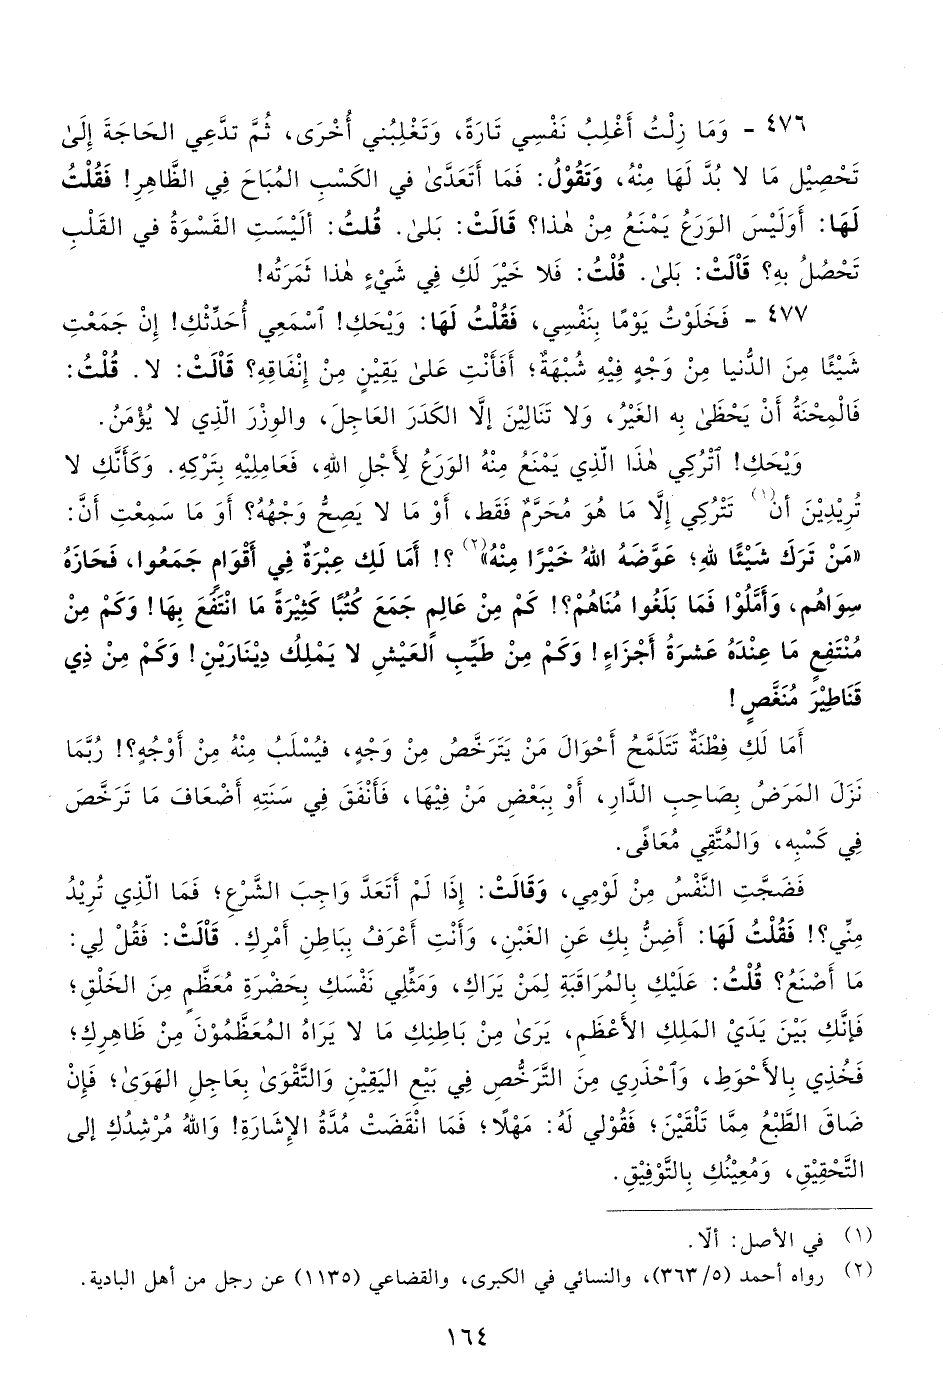 ٤٧٦ - وَمَا زِلْتُ أَغْلِبُ نَفْسِي تَارَةً، وَتَغْلِبُني أُخْرَى، ثُمَّ تدَّعِي الحَاجَةَ إِلَىٰ
تَحْصِيْلِ مَا لا بُدَّ لَهَا مِنْهُ، وَتَقُولُ: فَمَا أَتَعَدَّىٰ في الكَسْبِ المُبَاحَ فِي الظَّاهِرِ! فَقُلْتُ
لَهَا: أَوَلَيْسَ الوَرَعُ يَمْنَعُ مِنْ هٰذا؟ قَالَتْ: بَلىٰ. قُلتُ: أليْسَتِ القَسْوَةُ في القَلْبِ
تَحْصُلُ بِهِ؟ قَالَتْ: بَلىٰ. قُلْتُ: فَلا خَيْرَ لَكِ فِي شَيْءٍ هٰذا ثَمَرَتُه!
٤٧٧ - فَخَلَوْتُ يَوْمًا بِنَفْسِي، فَقُلْتُ لَهَا: وَيْحَكِ! ٱسْمَعِي أُحَدِّثْكِ! إِنْ جَمَعْتِ
شَيْئًا مِنَ الدُّنيا مِنْ وَجْهٍ فِيْهِ شُبْهَةٌ؛ أَفَأَنْتِ عَلىٰ يَقِيْنٍ مِنْ إِنْفَاقِهِ؟ قَالَتْ: لا. قُلْتُ:
فَالْمِحْنَةُ أَنْ يَحْظَىٰ بِهِ الغَيْرُ، وَلا تَنَالِيْنَ إلَّا الكَدَرَ العَاجِلَ، والوِزْرَ الّذِي لا يُؤْمَنُ.
وَيْحَكِ! ٱتْرُكِي هٰذَا الّذِي يَمْنَعُ مِنْهُ الوَرَعُ لِأَجْلِ اللهِ، فَعَامِلِيْهِ بِتَرْكِهِ. وَكَأَنَّكِ لا
تُرِيْدِيْنَ أنْ(١) تَتْرُكِي إِلَّا مَا هُوَ مُحَرَّمٌ فَقَط، أَوْ مَا لا يَصِحُّ وَجْهُهُ؟ أَوَ مَا سَمِعْتِ أنَّ:
«مَنْ تَرَكَ شَيْئًا للهِ؛ عَوَّضَهُ اللهُ خَيْرًا مِنْهُ»(٢) ؟! أمَا لَكِ عِبْرَةٌ فِي أَقْوَامٍ جَمَعُوا، فَحَازَهُ
سِوَاهُم، وَأَمَّلُوْا فَمَا بَلَغُوا مُنَاهُمْ؟! كَمْ مِنْ عَالِمٍ جَمَعَ كُتُبًا كَثِيْرَةً مَا انْتَفَعَ بِهَا! وَكَم مِنْ
مُنْتَفِعٍ مَا عِنْدَهُ عَشَرَةُ أَجْزَاءٍ! وَكَمْ مِنْ طَيِّبِ العَيْشِ لا يَمْلِكُ دِيْنَارَيْنِ! وَكَمْ مِنْ ذِي
قَنَاطِيْرَ مُنَغَّصٍ!
أَمَا لَكِ فِطْنَةٌ تَتَلَمَّحُ أَحْوَالَ مَنْ يَتَرَخَّصُ مِنْ وَجْهٍ، فَيُسْلَبُ مِنْهُ مِنْ أَوْجُهٍ؟! رُبَّمَا
نَزَلَ المَرَضُ بِصَاحِبِ الدَّارِ، أَوْ بِبَعْضِ مَنْ فِيْهَا، فَأَنْفَقَ فِي سَنَتِهِ أَضْعَافَ مَا تَرَخَّصَ
فِي كَسْبِه، وَالمُتَّقِي مُعَافًى.
فَضَجَّتِ النَّفْسُ مِنْ لَوْمِي، وَقَالَتْ: إِذَا لَمْ أَتَعَدَّ وَاجِبَ الشَّرْعِ؛ فَمَا الّذِي تُرِيْدُ
مِنِّي؟! فَقُلْتُ لَهَا: أَضِنُّ بِكِ عَنِ الغَبْنِ، وَأَنْتِ أَعْرَفُ بِبَاطِنِ أَمْرِكِ. قَالَتْ: فَقُلْ لِي:
مَا أَصْنَعُ؟ قُلْتُ: عَلَيْكِ بِالمُرَاقَبَةِ لِمَنْ يَرَاكِ، وَمَثِّلِي نَفْسَكِ بِحَضْرَةِ مُعَظَّمٍ مِنَ الخَلْقِ؛
فَإِنَّكِ بَيْنَ يَدَيْ المَلِكِ الأَعْظَمِ، يَرَىٰ مِنْ بَاطِنِكِ مَا لا يَرَاهُ المُعَظَّمُوْنَ مِنْ ظَاهِرِكِ؛
فَخُذِي بِالأَحْوَطِ، وَٱحْذَرِي مِنَ التَّرَخُّصِ فِي بَيْعِ اليَقِيْنِ وَالتَّقْوَىٰ بِعَاجِلِ الهَوَىٰ؛ فَإِنْ
ضَاقَ الطَّبْعُ مِمَّا تَلْقَيْنَ؛ فَقُوْلي لَهُ: مَهْلًا؛ فَمَا انْقَضَتْ مُدَّةُ الإِشَارَةِ! وَاللهُ مُرْشِدُكِ إلى
التَّحْقِيْقِ، وَمُعِيْنُكِ بِالتَّوْفِيْقِ.
(١) في الأصل: ألّا.
(٢) رواه أحمد (٣٦٣/٥)، والنسائي في الكبرى، والقضاعي (١١٣٥) عن رجل من أهل البادية.
١٦٤